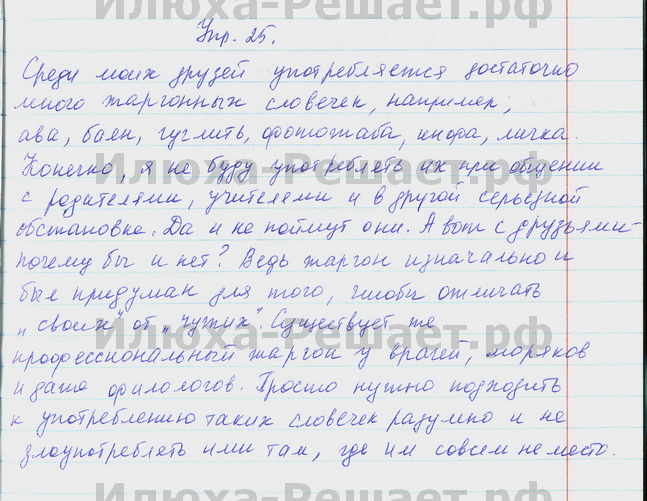 Илюха-Решает.рф
Упр. 25.
Среди моих друзей употребляется достаточно
много жаргонных словечек, например,
ава, баян, гуглить, фотожаба, инфа, личка.
Илюха-Решает.рф
Конечно, я не буду употреблять их при общении
с родителями, учителями и в другой серьезной
обстановке. Да и не поймут они. А вот с друзьями-
почему бы и нет? Ведь жаргон изначально и
был придуман для того, чтобы отличать
„своих“ от „чужих“. Существует же
Илюха-Решает.рф
профессиональный жаргон у врачей, моряков
и даже филологов. Просто нужно подходить
к употреблению таких словечек разумно и не
злоупотреблять ими там, где им совсем не место.
Илюха-Решает.рф